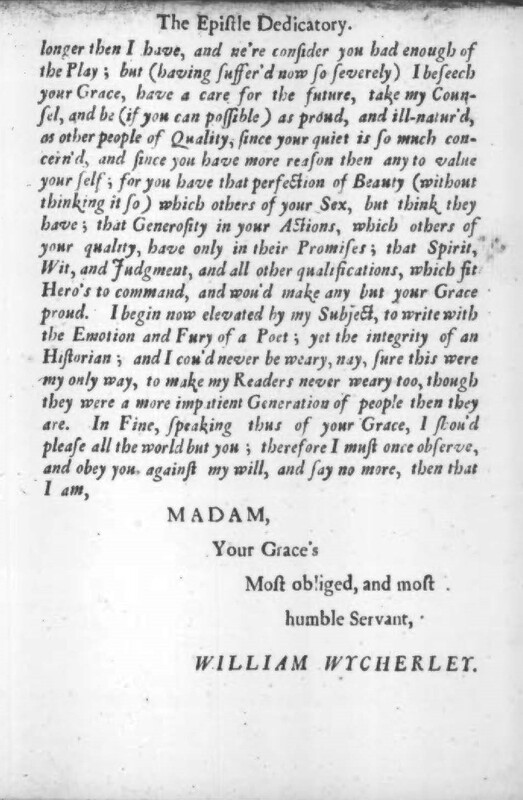 The Epiſtle Dedicatory.
longer then I have, and ne're conſider you had enough of
the Play; but (having ſuffer'd now ſo ſeverely) I beſeech
your Grace, have a care for the future, take my Coun-
ſel, and be (if you can poſſible) as proud, and ill-natur'd,
as other people of Quality, ſince your quiet is ſo much con-
cern'd, and ſince you have more reaſon then any to value
your ſelf; for you have that perfection of Beauty (without
thinking it ſo) which others of your Sex, but think they
have; that Generoſity in your Actions, which others of
your quality, have only in their Promiſes; that Spirit,
Wit, and Judgment, and all other qualifications, which fit
Hero's to command, and wou'd make any but your Grace
proud. I begin now elevated by my Subject, to write with
the Emotion and Fury of a Poet; yet the integrity of an
Hiſtorian; and I cou'd never be weary, nay, ſure this were
my only way, to make my Readers never weary too, though
they were a more impatient Generation of people then they
are. In Fine, ſpeaking thus of your Grace, I ſhou'd
pleaſe all the world but you; therefore I muſt once obſerve,
and obey you againſt my will, and ſay no more, then that
I am,
MADAM,
Your Grace's
Moſt obliged, and moſt
humble Servant,
WILLIAM WYCHERLEY.